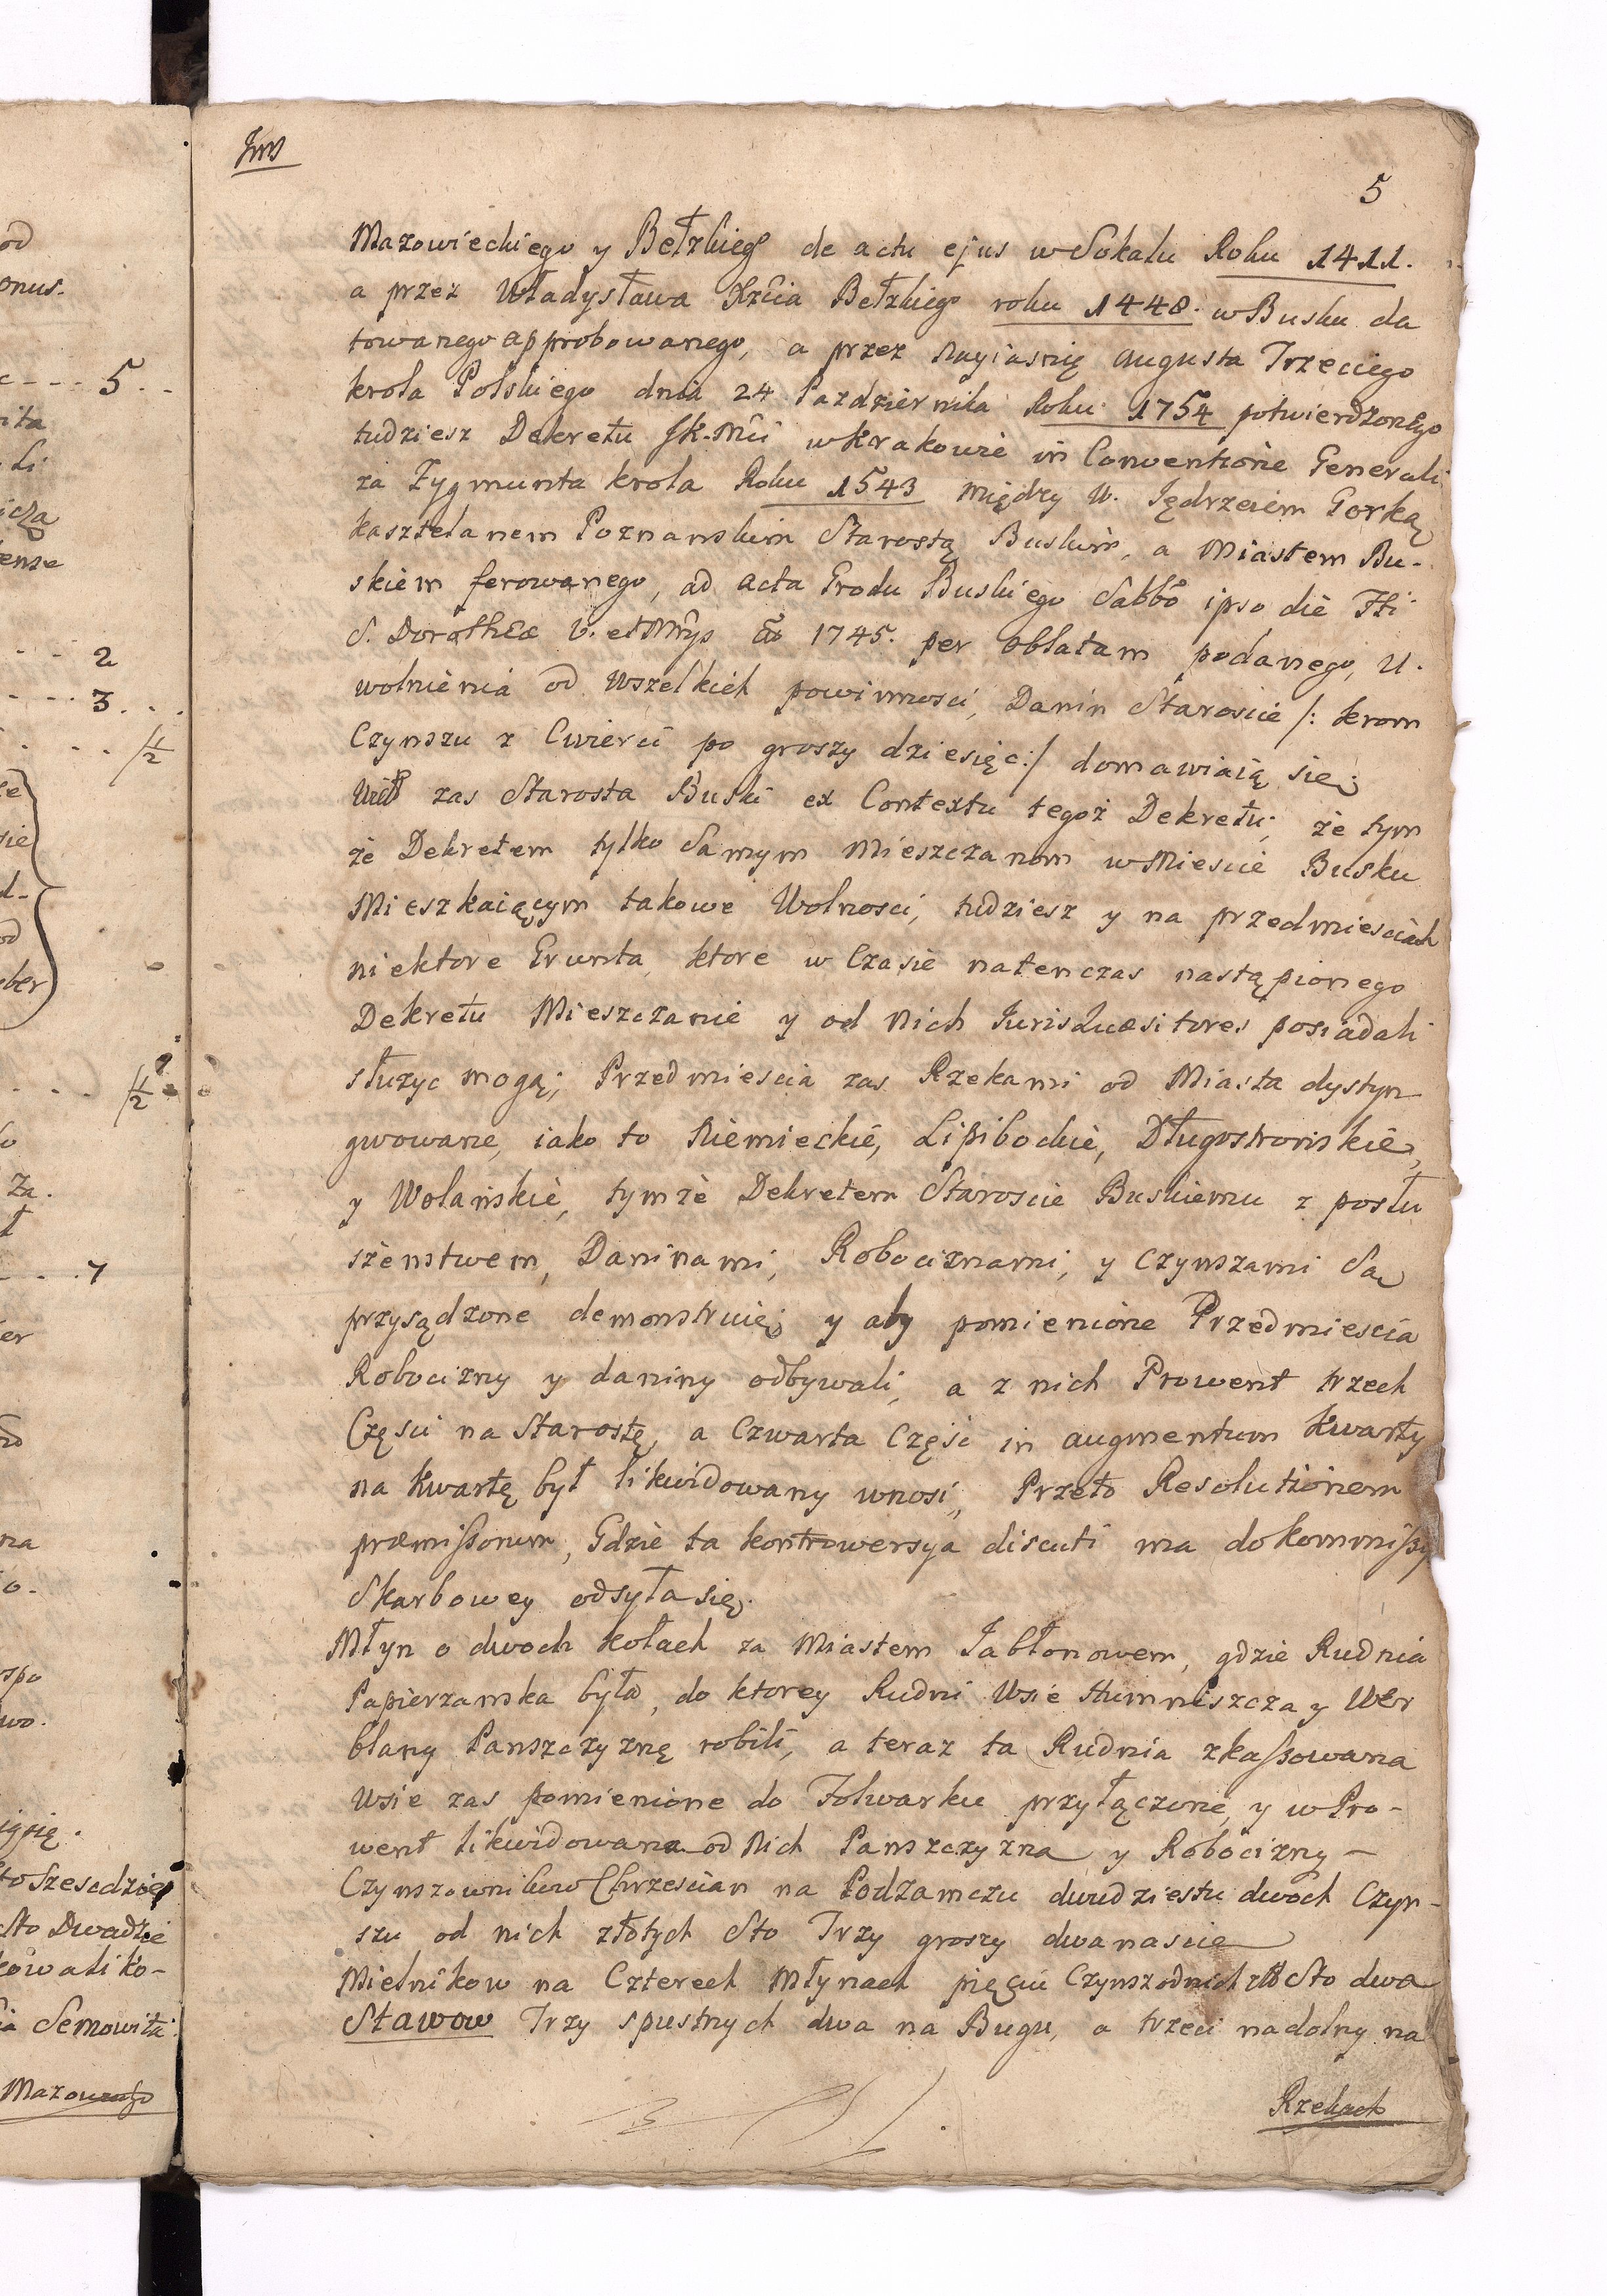 od
onus.
5
rita
Li
iczą
ense
2
3
1/2
że
sie
d-
od
ober
1/2
Za.
7
er
na
o.
spo
wo.
ięsię.
to Szescdzie
Sto Dwadzie
kowali ko-
ia Semowita
Mazowieckgo
5
Mazowieckiego y Bełzkieg° de actu ejus w Sokalu Roku 1411.
a przez Władysława Xżcia Bełzkiego roku 1448. w Busku da
towanego approbowanego, a przez Nayiasnię Augusta Trzeciego
krola Polskiego dnia 24 Pazdziernika Roku 1754 potwierdzonego
tudziesz Dekretu JK.Mci w Krakowie in Conventione Generali
za Zygmunta krola Roku 1543 między W. Jędrzeiem Gorką
kasztelanem Poznanskim Starostą Buskim, a Miastem Bu-
skiem ferowanego, ad acta Grodu Buskiego Sabbo ipso die Fti
S. Dorotheæ V. et Mrys ao 1745. per oblatam podanego, u.
wolnienia od wszelkich powinnosci, Danin Staroscie /: krom
Czynszu z Cwierci po groszy dziesięć :/ domawiaią się;
zas Starosta Buski ex Contextu tegoż Dekretu, że tym
że Dekretem tylko Samym Mieszczanom w Miescie Busku
Mieszkaiącym takowe Wolnosci, tudziesz y na przedmiesciach
niektore Grunta ktore w Czasie natenczas nastąpionego
Dekretu Mieszczanie y od Nich Jurisquæsitores posiadali
służyc mogą; Przedmiescia zas Rzekami od Miasta dystyn
gwowane, iako to Niemieckie, Lipibockie, Długostronskie,
y Wolańskie, tymże Dekretem Staroscie Buskiemu z posłu
szenstwem, Daninami, Robociznami, y Czynszami Są
przysądzone demonstruie; y aby pomienione Przedmiescia
Robocizny y daniny odbywali, a z nich Prowent trzech
Częsci na Starostę, a Czwarta Częśc in augmentum Kwarty
na Kwartę był likwidowany wnosi, Przeto Resolutionem
præmissorum, Gdzie ta kontrowersya discuti ma do kommissy
Skarbowey odsyła się.
Młyn o dwoch kołach za Miastem Jabłonowem, gdzie Rudnia
Papierzanska była, do ktorey Rudni Wsie Humniszcza y Wer
blany Panszczyznę robili, a teraz ta Rudnia zkassowana
Wsie zas pomienione do Folwarku przyłączone, y w Pro-
went likwidowana od Nich Panszczyzna y Robocizny -
Czynszownikow Chrzescian na Podzamczu dwudziestu dwoch Czyn-
szu od nich złotych Sto Trzy groszy dwanascie
Mielnikow na Czterech Młynach pięciu Czynszodnich Sto dwa
Stawow Trzy spustnych dwa na Bugu, a trzeci nadolny na
Rzekach